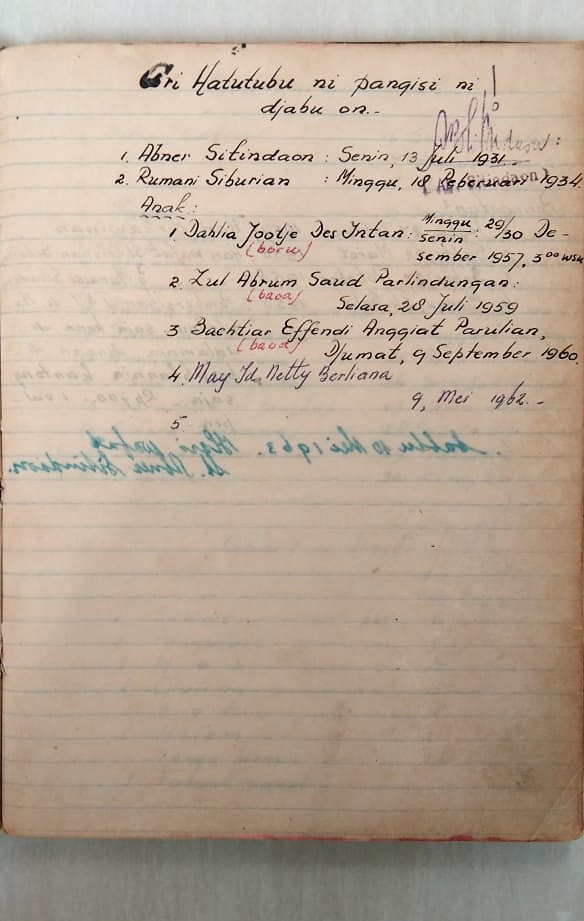 Ari Hatutubu ni pangisi ni
djabu on.-
1. Abner Sitindaon : Senin, 13 Juli 1931.
(Ab. Sitindaon)
2. Rumani Siburian : Minggu, 18 Pebéruari 1934.
Anak :
1 Dahlia Jootje Des Intan : Minggu/Senin : 29/30 De-
(boru)
sember 1957, 3⁰⁰ wsu
2. Zul Abrum Saud Parlindungan :
(baoa)
Selasa, 28 Juli 1959
3 Bachtiar Effendi Anggiat Parulian,
(baoa)
Djumat, 9 September 1960.
4 May Id Netty Berliana
9, Mei 1962.-
5